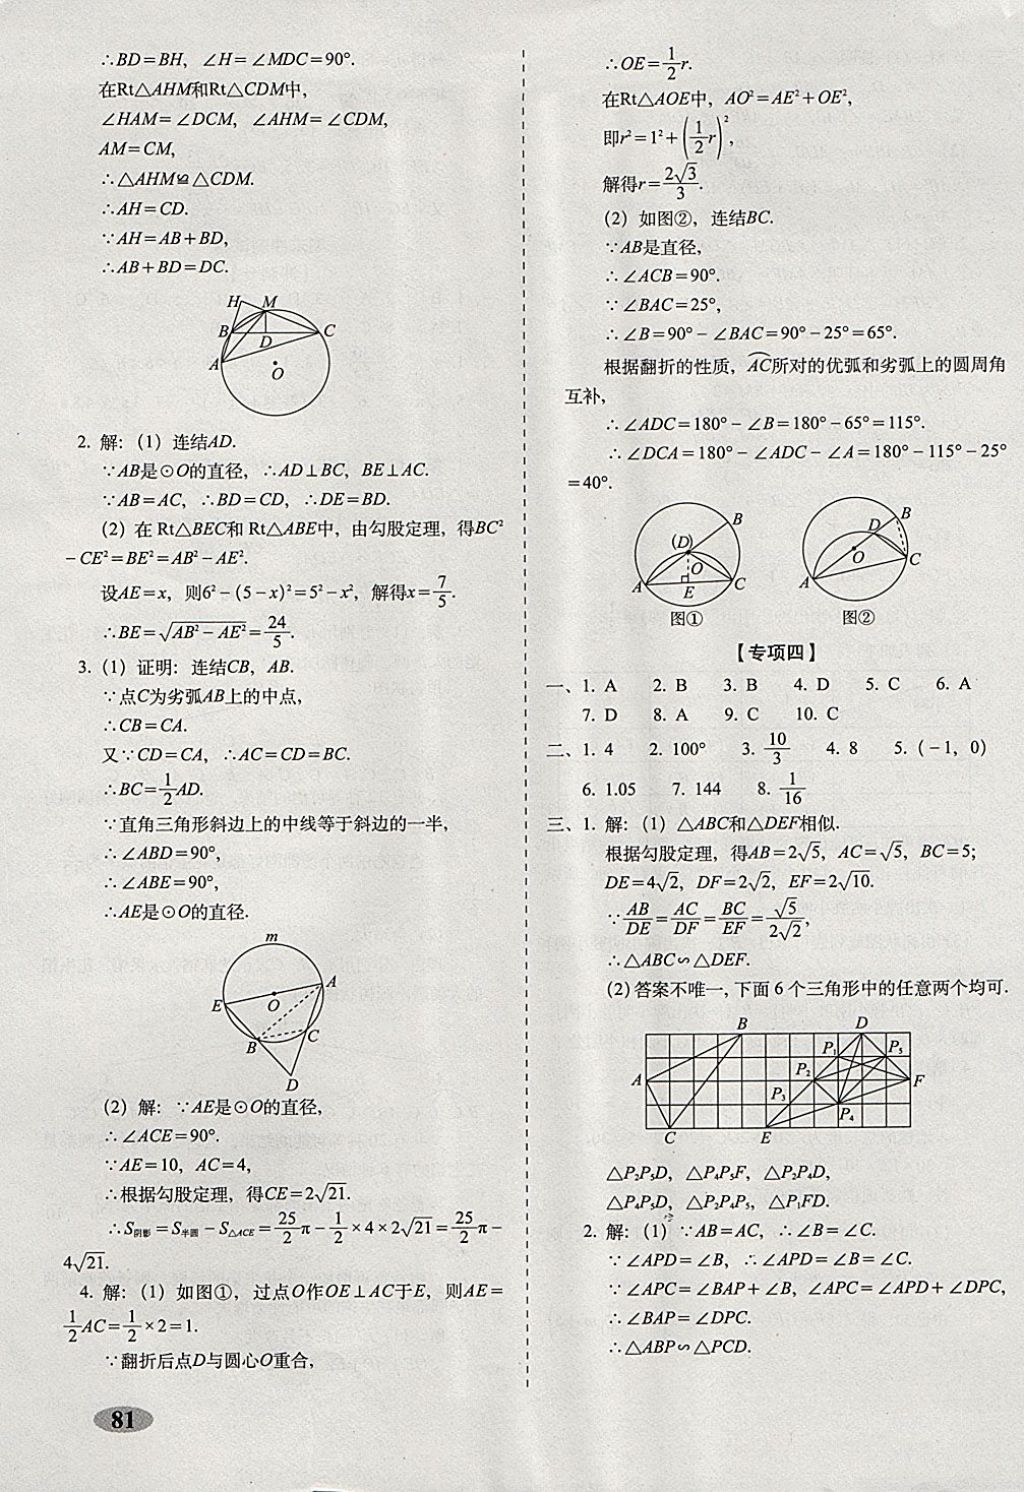 ∴BD=BH，∠H=∠MDC=90°.
在Rt△AHM和Rt△CDM中，
∠HAM=∠DCM，∠AHM=∠CDM，
AM=CM，
∴△AHM≌△CDM.
∴AH=CD.
∵AH=AB+BD，
∴AB+BD=DC.
H M
B D C
A O
2. 解：（1）连结AD.
∵AB是⊙O的直径，∴AD⊥BC，BE⊥AC.
∵AB=AC，∴BD=CD，∴DE=BD.
（2）在 Rt△BEC和 Rt△ABE中，由勾股定理，得BC²
－CE²=BE²=AB²－AE².
设AE=x，则6²－(5－x)²=5²－x²，解得x=7/5.
∴BE=√(AB²－AE²)=24/5.
3.（1）证明：连结CB，AB.
∵点C为劣弧AB上的中点，
∴CB=CA.
又∵CD=CA，∴AC=CD=BC.
∴BC=1/2AD.
∵直角三角形斜边上的中线等于斜边的一半，
∴∠ABD=90°，
∴∠ABE=90°，
∴AE是⊙O的直径.
m
E O A
B C
D
（2）解：∵AE是⊙O的直径，
∴∠ACE=90°.
∵AE=10，AC=4，
∴根据勾股定理，得CE=2√21.
∴S阴影=S半圆－S△ACE=25/2π－1/2×4×2√21=25/2π－
4√21.
4. 解：（1）如图①，过点O作OE⊥AC于E，则AE=
1/2AC=1/2×2=1.
∵翻折后点D与圆心O重合，
81
∴OE=1/2r.
在Rt△AOE中，AO²=AE²+OE²，
即r²=1²+(1/2r)²，
解得r=2√3/3.
（2）如图②，连结BC.
∵AB是直径，
∴∠ACB=90°.
∵∠BAC=25°，
∴∠B=90°－∠BAC=90°－25°=65°.
根据翻折的性质，AC所对的优弧和劣弧上的圆周角
互补，
∴∠ADC=180°－∠B=180°－65°=115°.
∴∠DCA=180°－∠ADC－∠A=180°－115°－25°
=40°.
(D) B
O
A E C
图①
D B
O C
A
图②
【专项四】
一、1. A 2. B 3. B 4. D 5. C 6. A
7. D 8. A 9. C 10. C
二、1. 4 2. 100° 3. 10/3 4. 8 5.（－1，0）
6. 1.05 7. 144 8. 1/16
三、1. 解：（1）△ABC和△DEF相似.
根据勾股定理，得AB=2√5，AC=√5，BC=5；
DE=4√2，DF=2√2，EF=2√10.
∵AB/DE=AC/DF=BC/EF=√5/2√2，
∴△ABC∽△DEF.
（2）答案不唯一，下面 6 个三角形中的任意两个均可.
B D
P₁ P₅
A P₂ F
P₃ P₄
C E
△P₂P₅D，△P₄P₅F，△P₂P₄D，
△P₄P₅D，△P₂P₄P₅，△P₁FD.
2. 解：（1）∵AB=AC，∴∠B=∠C.
∵∠APD=∠B，∴∠APD=∠B=∠C.
∵∠APC=∠BAP+∠B，∠APC=∠APD+∠DPC，
∴∠BAP=∠DPC.
∴△ABP∽△PCD.